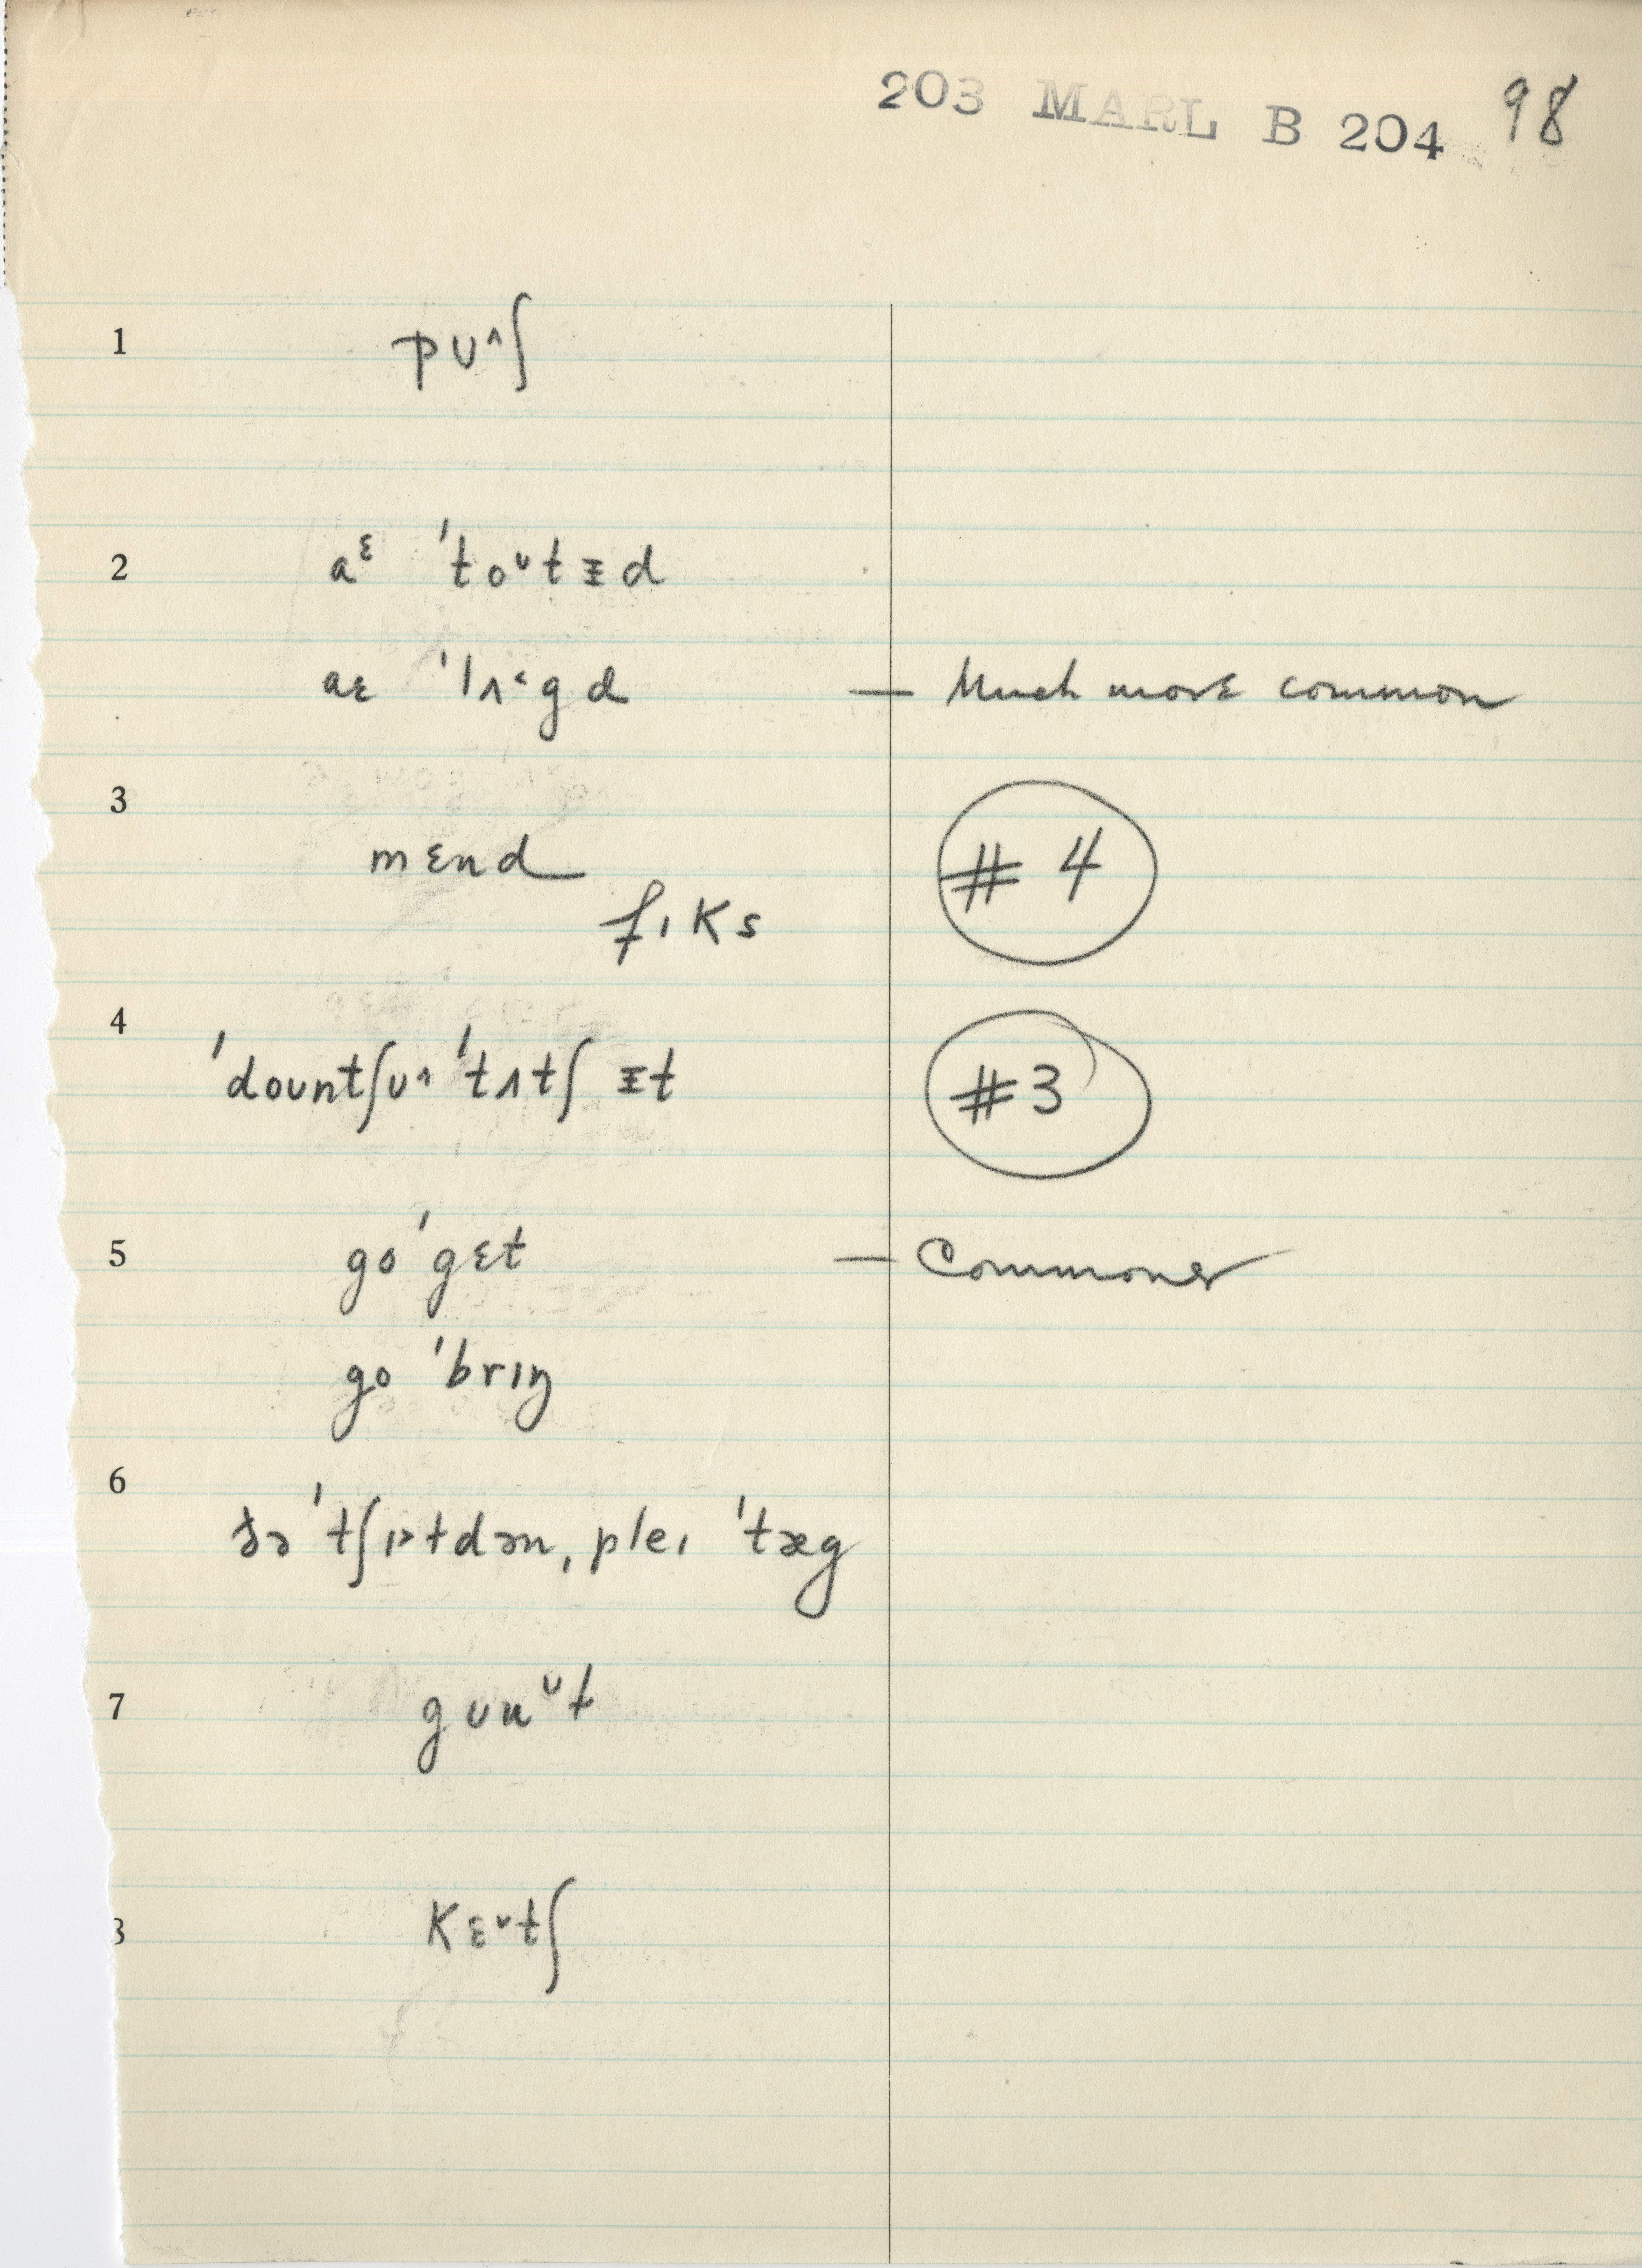 203 MARL B 204 98
1 pʊ^ʃ
2 aᵋ ˈtoᶷtᵻd
aɛ ˈlʌ˂gd — Much more common
3 mɛnd #4
fɪks
4 ˈdoʊntʃʊ^ ˈtʌtʃ ᵻt #3
5 go ˈgɛt — Commoner
go ˈbrɪŋ
6 ðə ˈtʃɪ˃tdən, pleɪ ˈtæg
7
8 kɛ˅tʃ